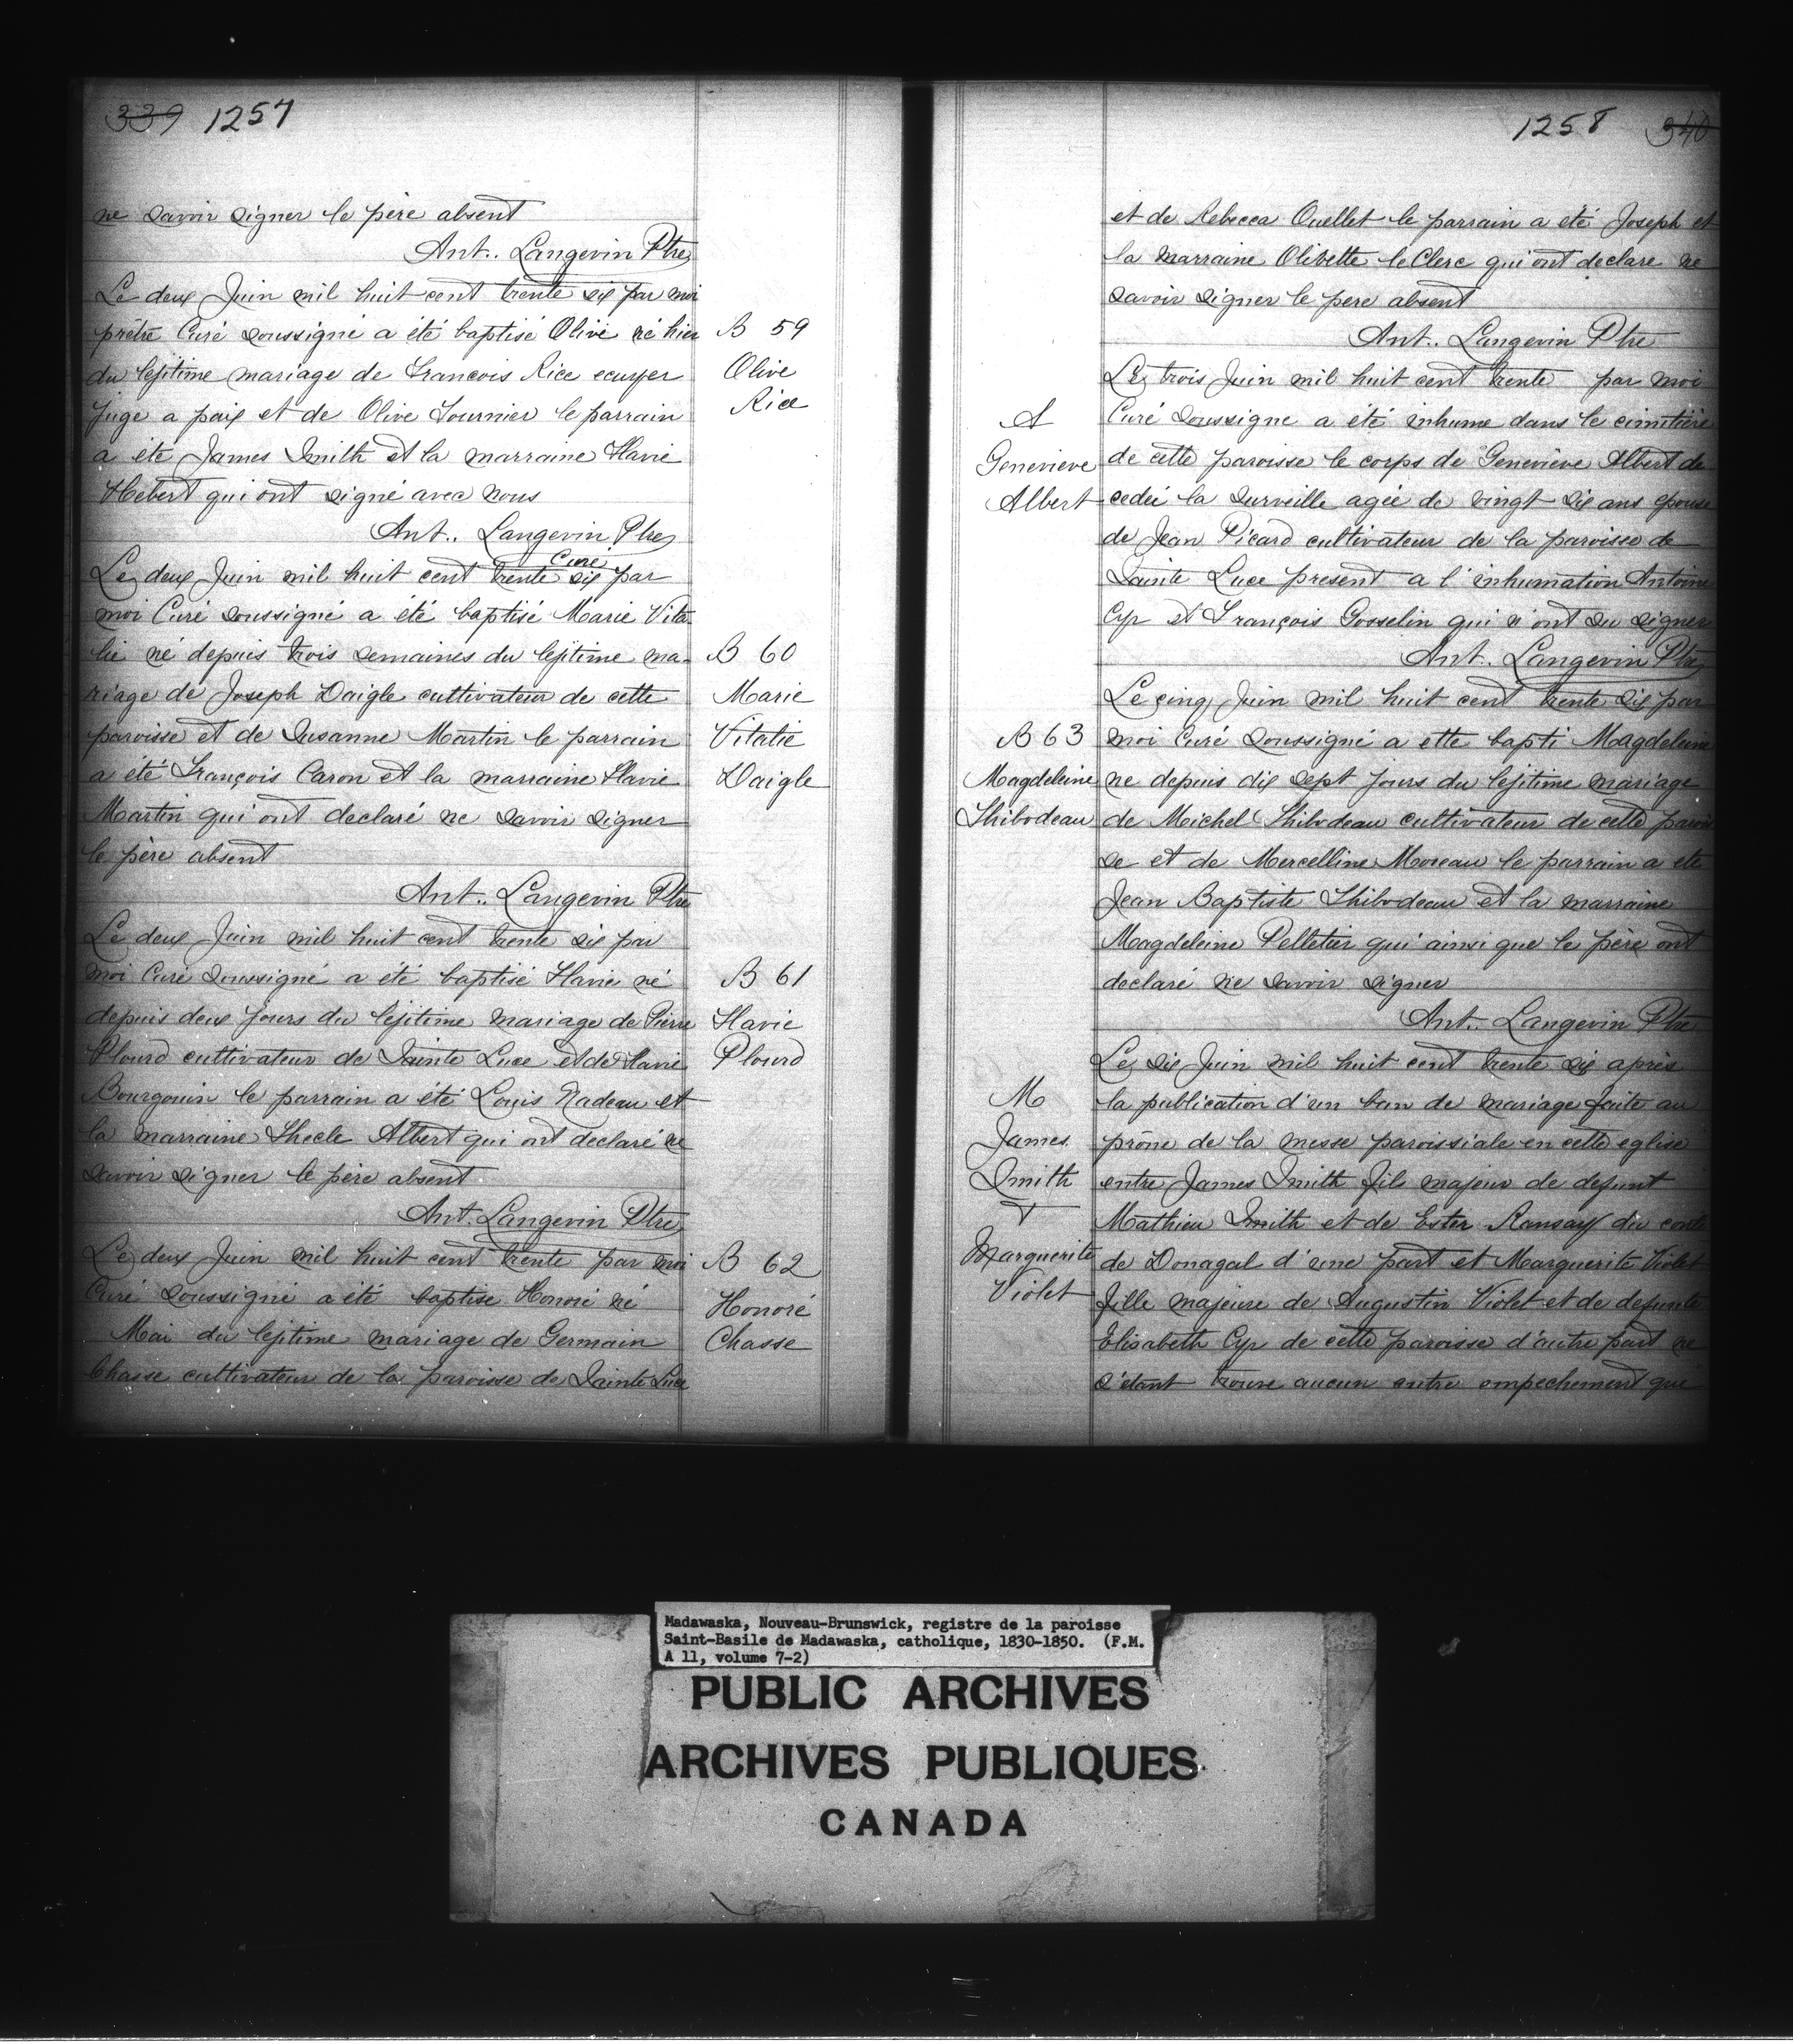 339 1257
ne savoir signer le père absent
Ant.. Langevin Ptre
Le deux Juin mil huit cent trente six par moi
prêtre Curé soussigné a été baptisé Olive né hier
B 59
du lejitime mariage de Francois Rice ecuyer
Olive
juge a paix et de Olive Fournier le parrain
Rice
a été James Smith et la marraine Flavie
Hebert qui ont signé avec nous
Ant.. Langevin Ptre
Curé
Le deux Juin mil huit cent trente six par
moi Curé soussigné a été baptisé Marie Vita
lie né depuis trois semaines du lejitime ma-
B 60
riage de Joseph Daigle cultivateur de cette
Marie
paroisse et de Susanne Martin le parrain
Vitalie
a été François Caron et la marraine Flavie
Daigle
Martin qui ont declaré ne savoir signer
le père absent
Ant.. Langevin Ptre
Le deux Juin mil huit cent trente six par
moi Curé soussigné a été baptisé Flavie né
B 61
depuis deux jours du lejitime mariage de Pierre
Flavie
Plourd cultivateur de Sainte Luce et de Flavie
Plourd
Bourgouin le parrain a été Louis Nadeau et
la marraine Thecle Albert qui ont declaré ne
savoir signer le père absent
Ant. Langevin Ptre
Le deux Juin mil huit cent trente par moi
B 62
Curé soussigné a été baptise Honoré né
Honoré
Mai du lejitime mariage de Germain
Chasse
Chasse cultivateur de la paroisse de Sainte Luce
1258 340
et de Rebecca Ouellet le parrain a été Joseph et
la marraine Olivette le Clerc qui ont declare ne
savoir signer le pere absent
Ant.. Langevin Ptre
Le trois Juin mil huit cent trente par moi
S
Curé soussigne a été inhume dans le cimitière
Genevieve
de cette paroisse le corps de Geneviève Albert de
Albert
cedée la surveille agée de vingt six ans epouse
de Jean Picard cultivateur de la paroisse de
Sainte Luce present a l'inhumation Antoine
Cyr et François Gosselin qui n'ont su signer
Ant. Langevin Ptre
Le cinq Juin mil huit cent trente six par
B 63
moi Curé soussigné a ette bapti Magdeleine
Magdeleine
ne depuis dix sept jours du lejitime mariage
Thibodeau
de Michel Thibodeau cultivateur de cette parois
se et de Mercelline Moreau le parrain a ete
Jean Baptiste Thibodeau et la marraine
Magdeleine Pelletier qui ainsi que le père ont
declaré ne savoir signer
Ant.. Langevin Ptre
Le six Juin mil huit cent trente six après
M
la publication d'un ban de mariage faite au
James
prône de la messe paroissiale en cette eglise
Smith
entre James Smith fils majeur de defunt
Mathieu Smith et de Ester Ramsay du conte
Marguerite
de Donagal d'une part et Marguerite Violet
Violet
fille majeure de Augustin Violet et de defunte
Elisabeth Cyr de cette paroisse d'autre part ne
s'étant trouve aucun autre empechement que
Madawaska, Nouveau-Brunswick, registre de la paroisse
Saint-Basile de Madawaska, catholique, 1830-1850. (F.M.
A 11, volume 7-2)
PUBLIC ARCHIVES
ARCHIVES PUBLIQUES
CANADA